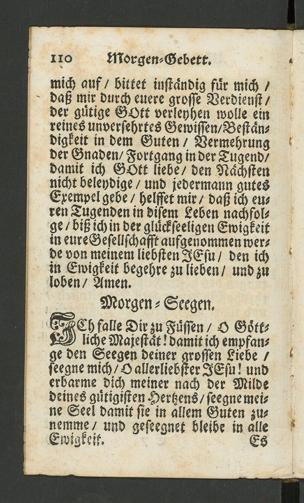 110 Morgen-Gebett.
mich auf / bittet inständig für mich /
daß mir durch euere grosse Verdienst /
der gütige GOtt verleyhen wolle ein
reines unversehrtes Gewissen/Bestän-
digkeit in dem Guten / Vermehrung
der Gnaden/ Fortgang in der Tugend/
damit ich GOtt liebe/ den Nächsten
nicht beleydige / und jedermann gutes
Exempel gebe / helffet mir / daß ich eu-
ren Tugenden in disem Leben nachfol-
ge / biß ich in der glückseeligen Ewigkeit
in eure Gesellschafft aufgenommen wer-
de von meinem liebsten JEsu / den ich
in Ewigkeit begehre zu lieben / und zu
loben / Amen.
Morgen-Seegen.
JCh falle Dir zu Füssen / O Gött-
liche Majestät! damit ich empfan-
ge den Seegen deiner grossen Liebe /
seegne mich/ O allerliebster JEsu! und
erbarme dich meiner nach der Milde
deines gütigisten Hertzens/ seegne mei-
ne Seel damit sie in allem Guten zu-
nemme/ und geseegnet bleibe in alle
Ewigkeit. Es